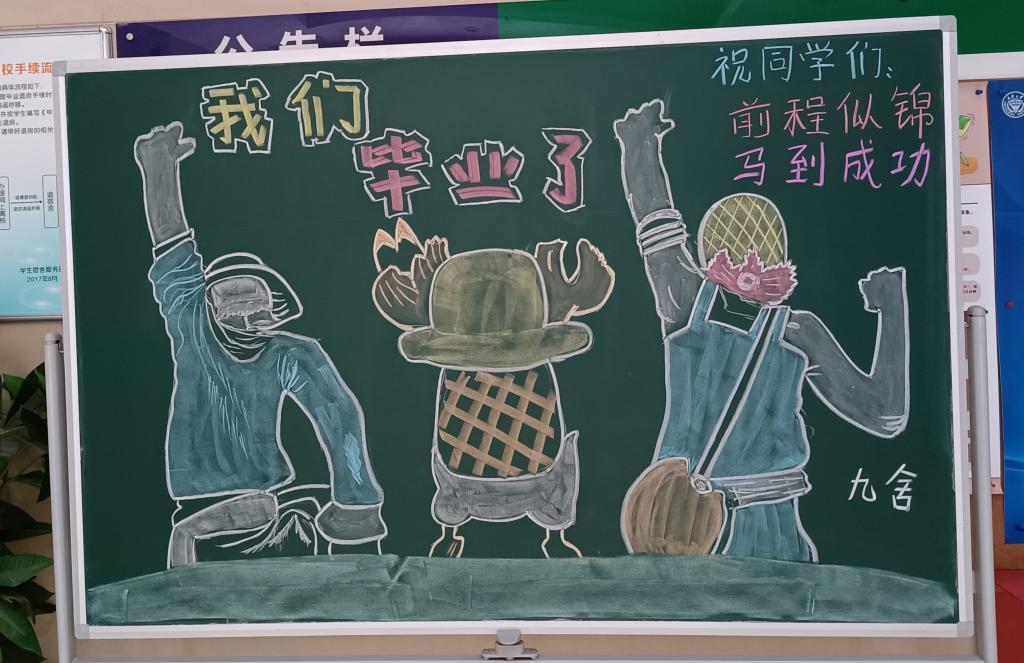 公告栏
校手续流
具体流程如下:
学生宿舍服务
2017年6月
我们
毕业了
祝同学们:
前程似锦
马到成功
九舍